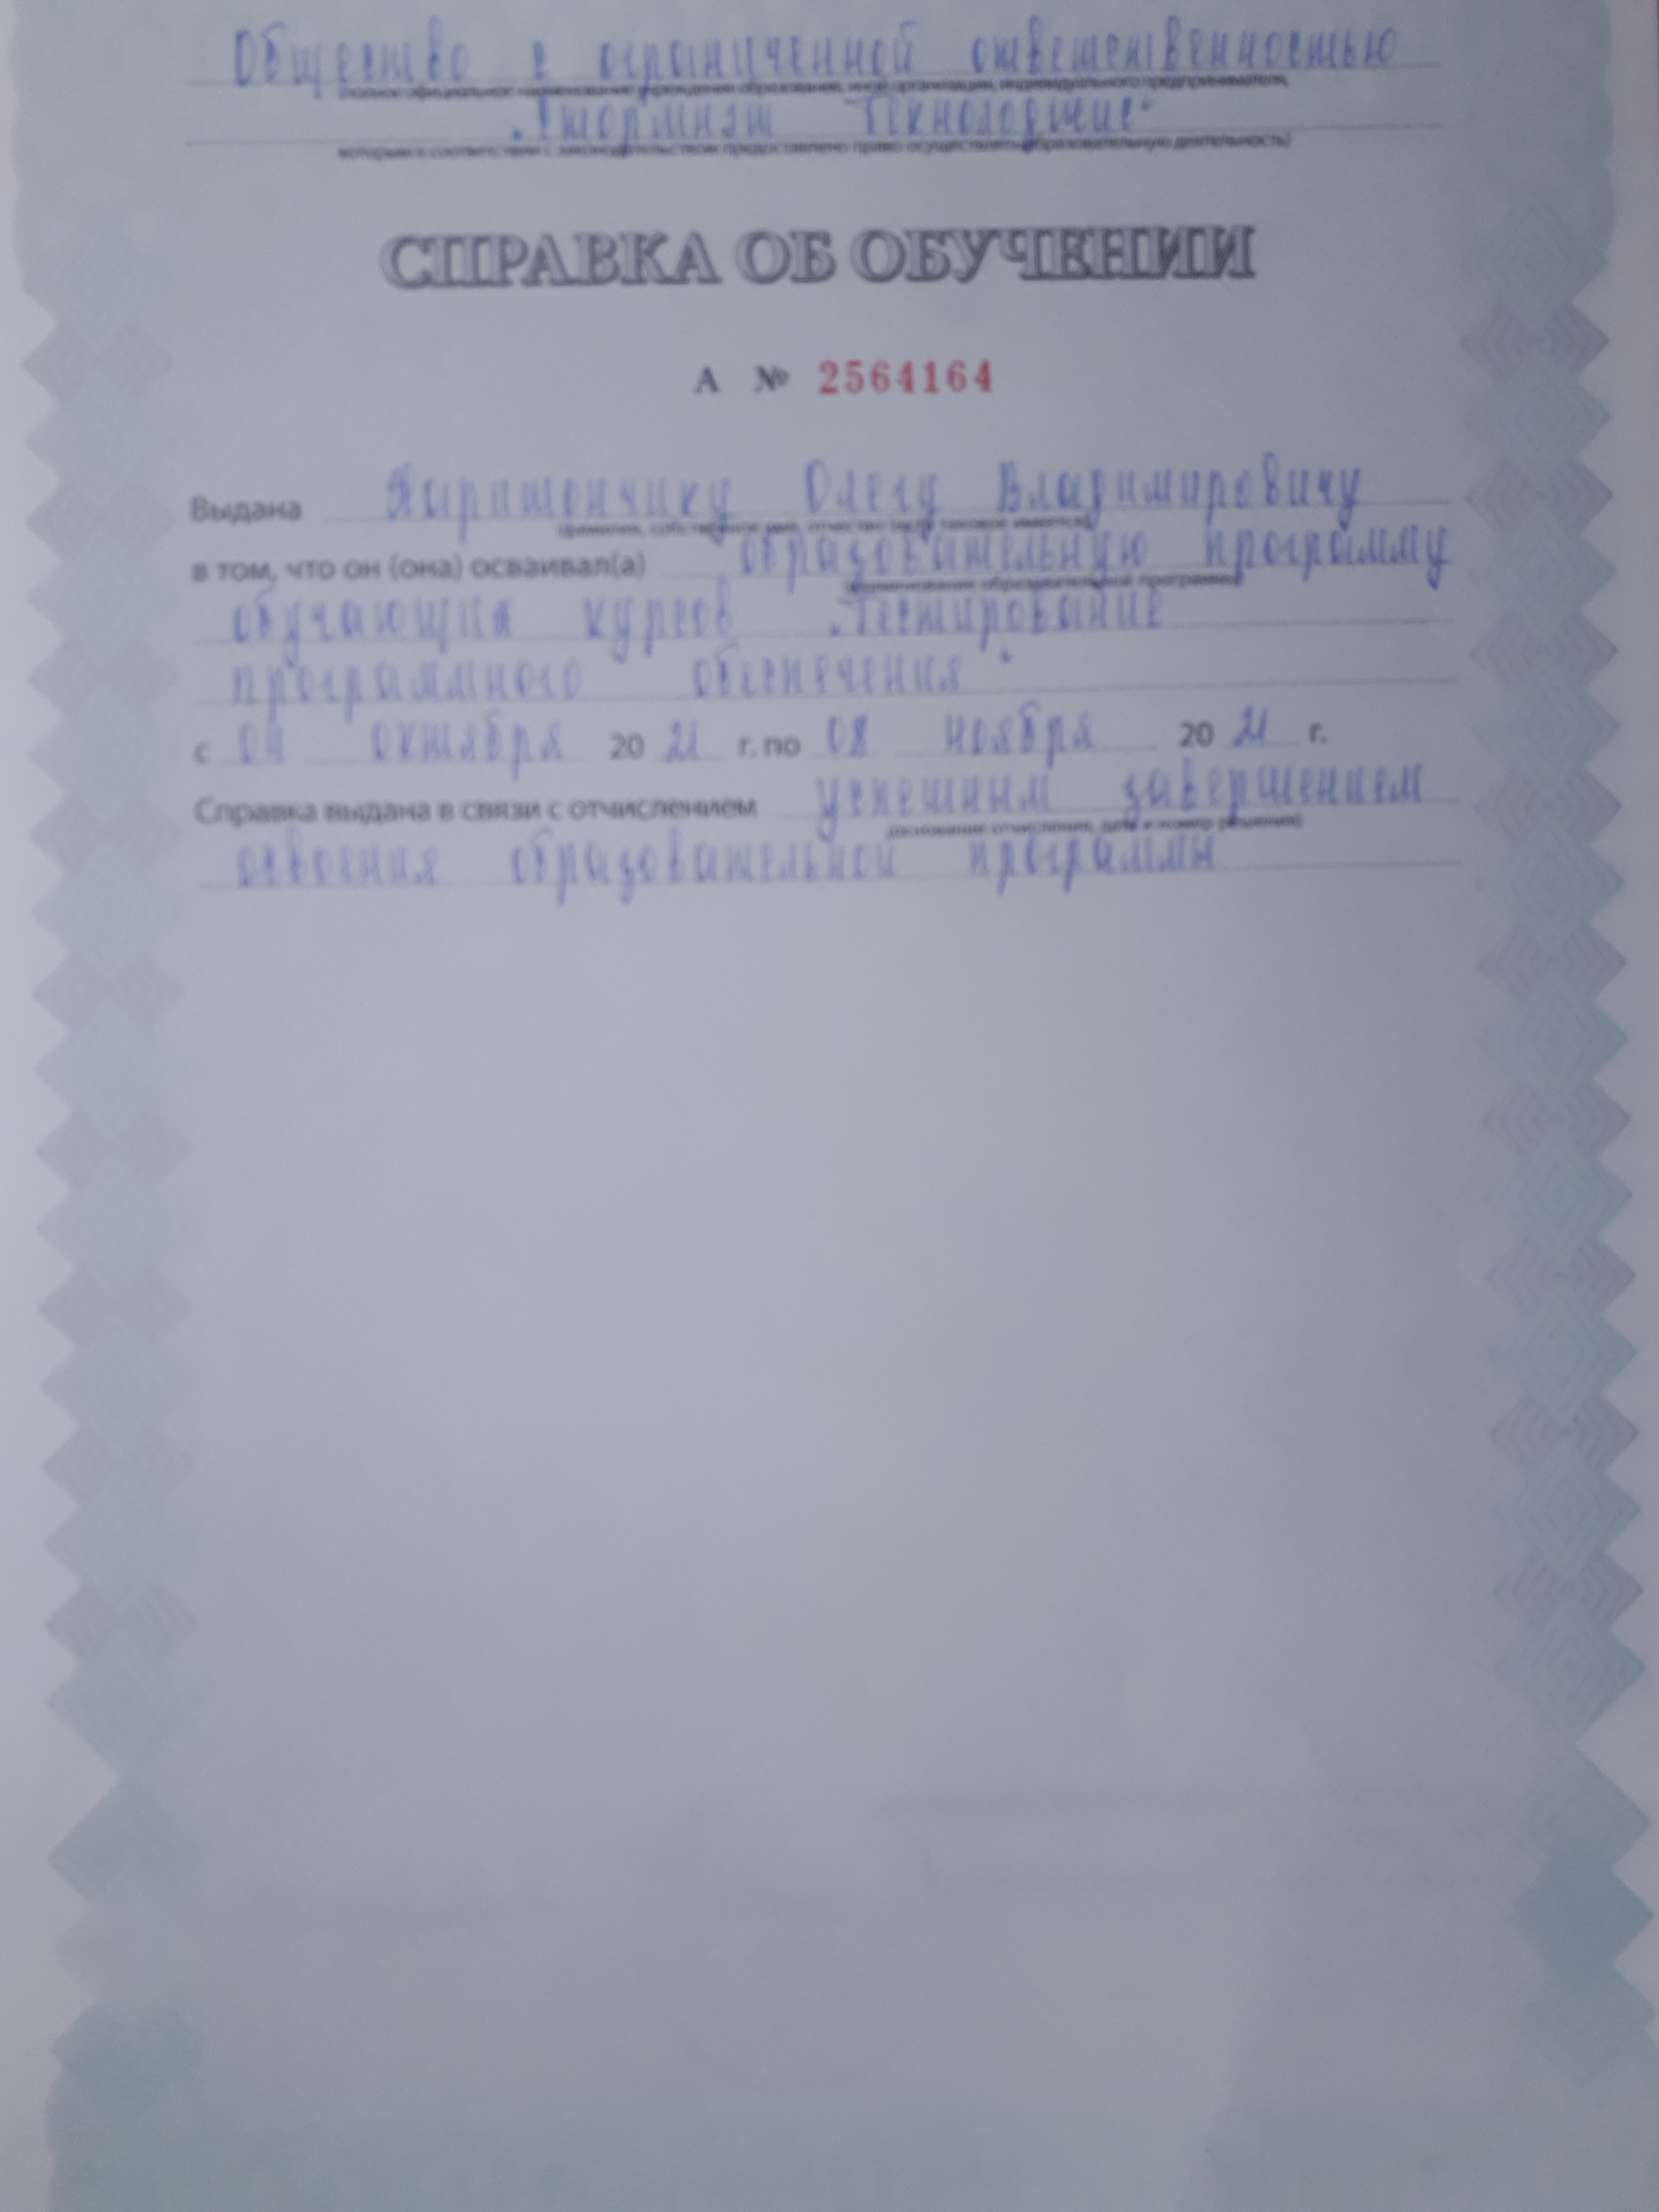 Общество с ограниченной ответственностью
(полное официальное наименование учреждения образования, иной организации, индивидуального предпринимателя,
"Стормнэт Технолоджис"
которым в соответствии с законодательством предоставлено право осуществлять образовательную деятельность)
СПРАВКА ОБ ОБУЧЕНИИ
А № 2564164
Выдана Олегу Владимировичу
(фамилия, собственное имя, отчество (если таковое имеется)
в том, что он (она) осваивал(а) образовательную программу
(наименование образовательной программы)
обучающих курсов "Тестирование
программного обеспечения"
с 04 октября 20 21 г. по 08 ноября 20 21 г.
Справка выдана в связи с отчислением успешным завершением
(основание отчисления, дата и номер решения)
освоения образовательной программы